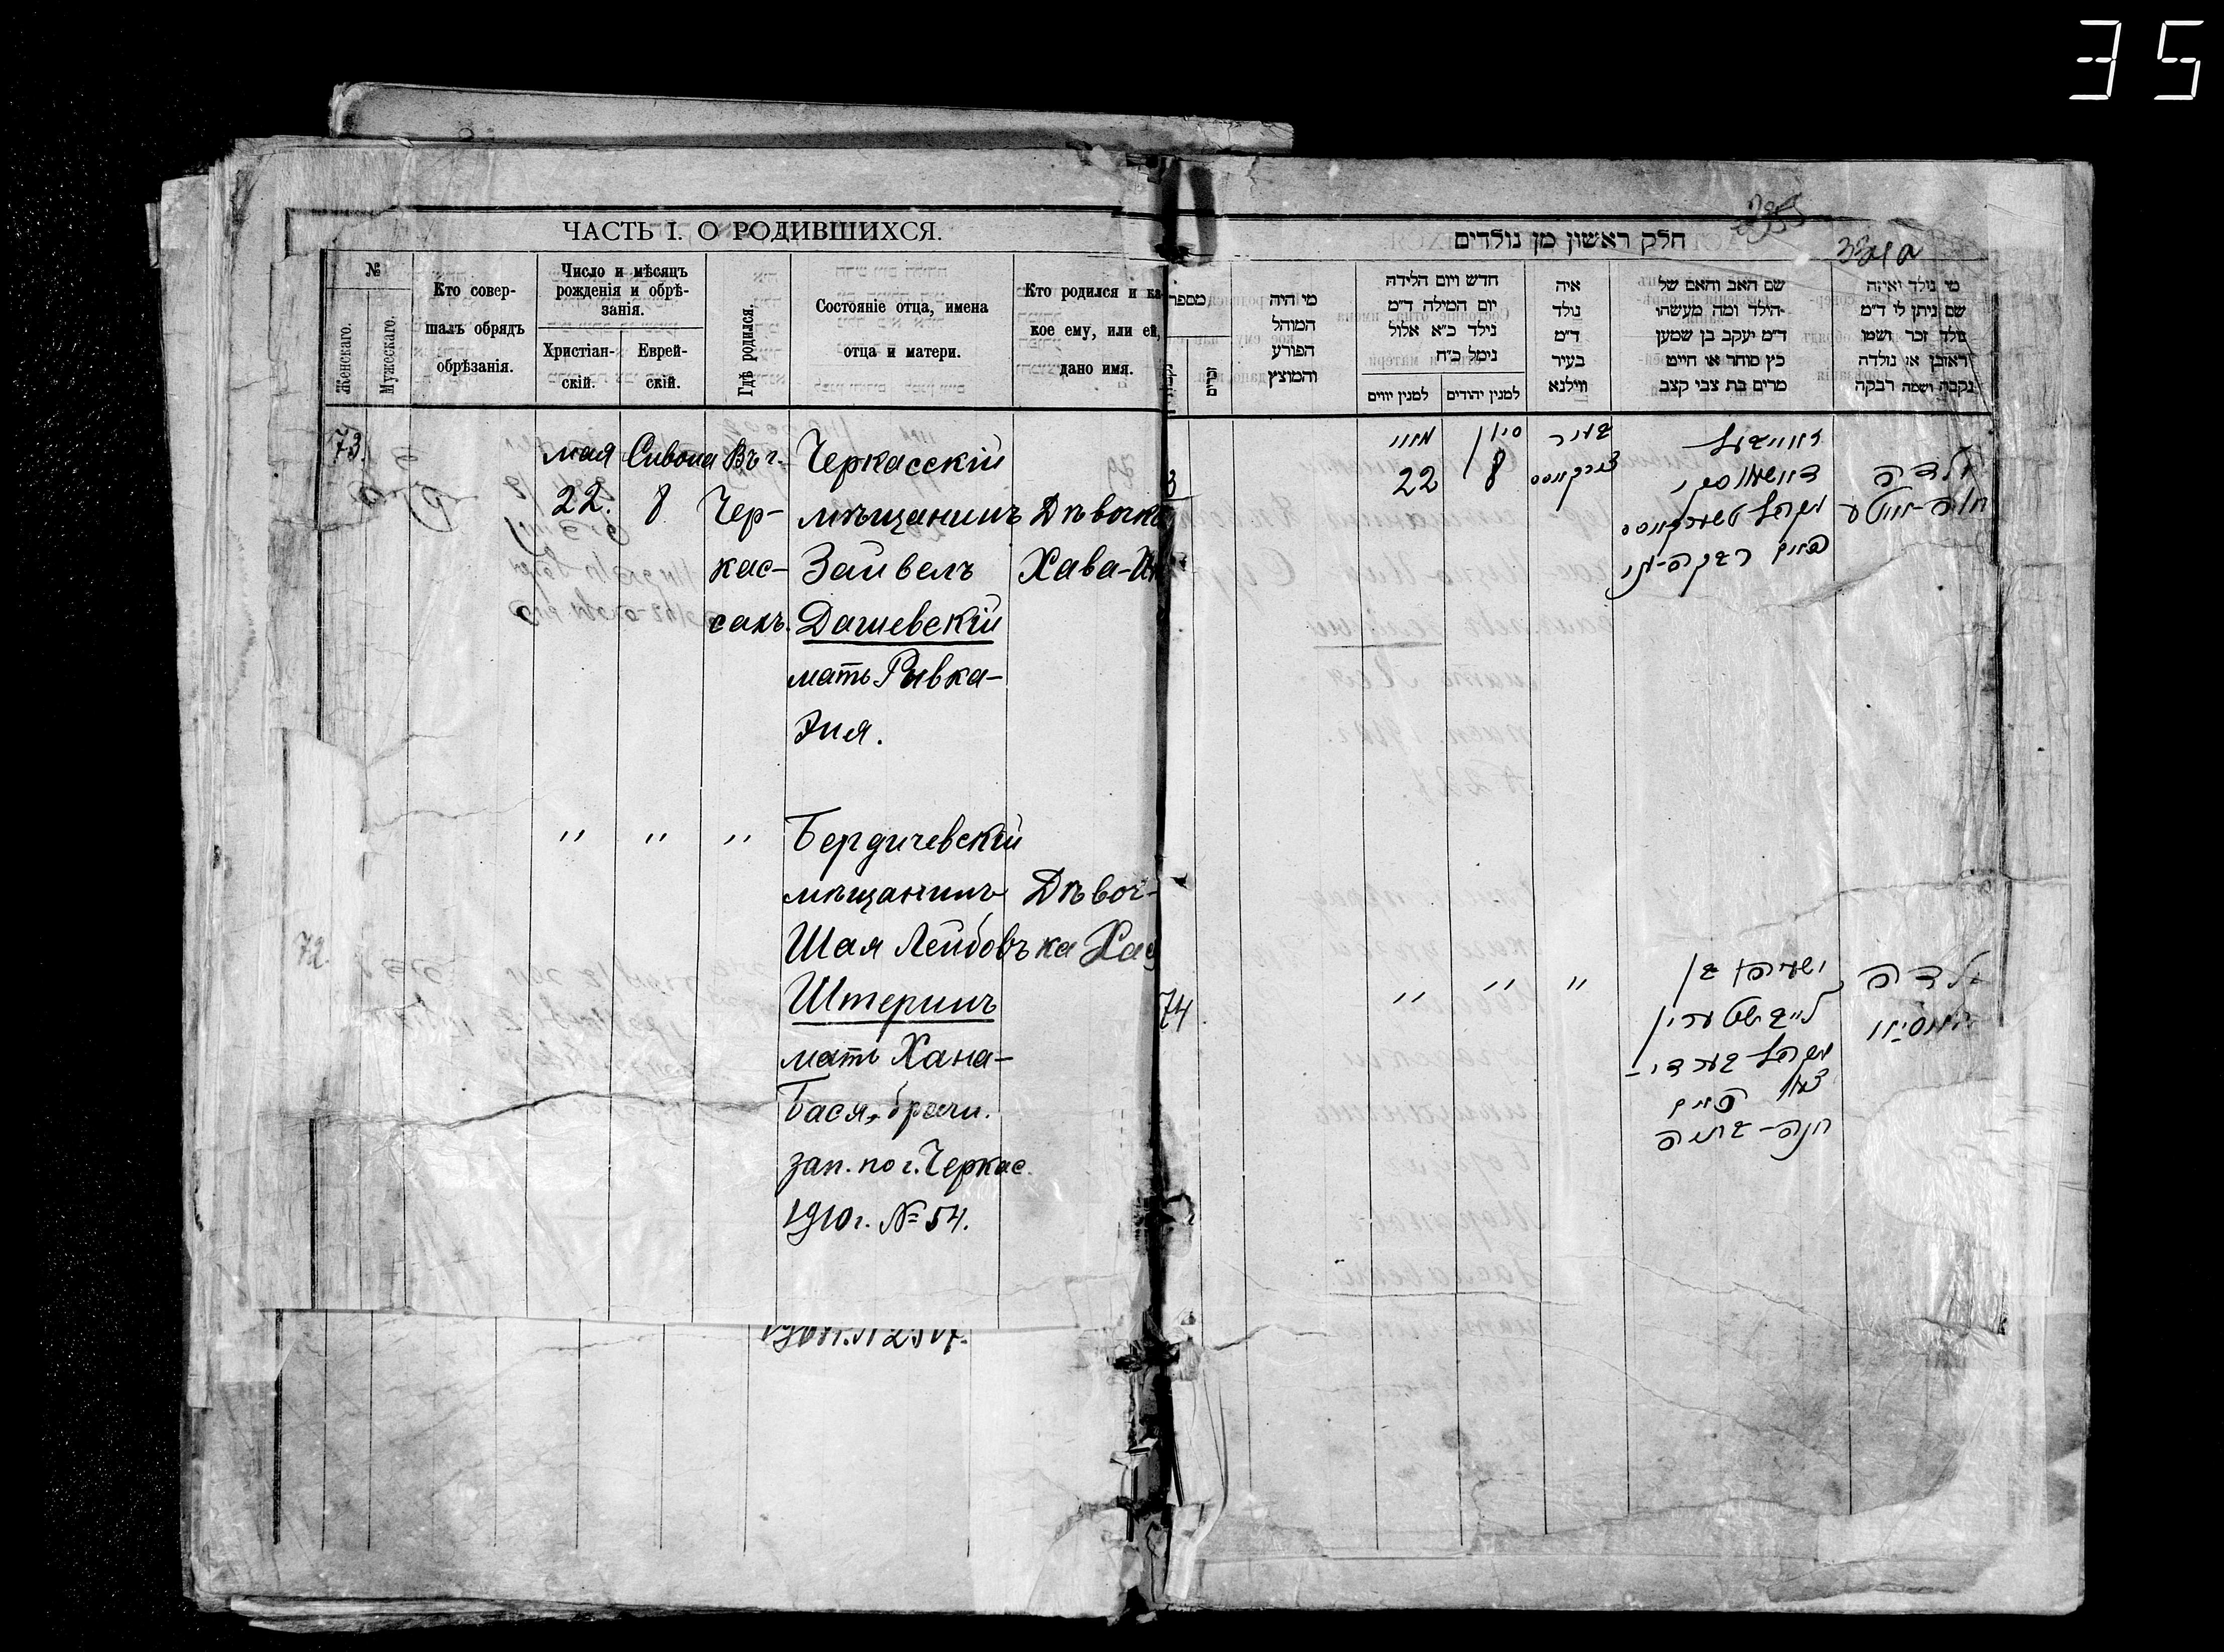 35
ЧАСТЬ I. О РОДИВШИХСЯ.
№
Женскаго.
Мужескаго.
Кто совер-
шалъ обрядъ
обрѣзанія.
Число и мѣсяцъ
рожденія и обрѣ-
занія.
Христіан-
скій.
Еврей-
скій.
Гдѣ родился.
Состояніе отца, имена
отца и матери.
Кто родился и ка-
кое ему, или ей,
дано имя.
73.
мая
22.
Сивона
8
Въ г.
Чер-
кас-
сахъ.
Черкасскій
мѣщанинъ
Зайвелъ
Дашевскій
мать Рывка-
Эня.
Дѣвочка
Хава-
72
" " "
Бердичевскій
мѣщанинъ
Шая Лейбовъ
Штеринъ
мать Хана-
Бася, брачн.
зап. по г. Черкас.
1910 г. № 54.
Дѣвоч-
ка Хас
חלק ראשון מן נולדים
מספר
זכרים
מי היה
המוהל
הפורע
והמוצץ
חדש ויום הלידה
יום המילה ד״מ
נילד כ״א אלול
נימל כ״ח
למנין יווים
למנין יהודים
איה
נולד
ד״מ
בעיר
ווילנא
שם האב והאם של
הילד ומה מעשהו
ד״מ יעקב בן שמען
כץ סוחר או חייט
מרים בת צבי קצב
מי נולד ואיזה
שם ניתן לו ד״מ
נולד זכר ושמו
ראובן או נולדה
נקבה ושמה רבקה
3
מאי
22
סיון
8
בעיר
זייוועל
דאשעווסקי
האם רבקה-
ילדה
74
" " "
ישעיה בן
לייב שטערין
האם
חנה-בתיה
ילדה